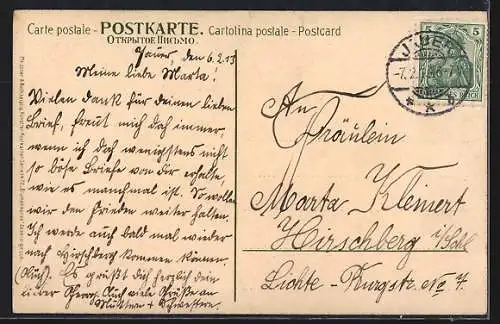 Carte postale - POSTKARTE. Cartolina postale - Postcard
ОТКРЫТОЕ ПИСЬМО.
Jauer, den 6.2.13
Meine liebe Marta!
Vielen Dank für deinen lieben
Brief, freut mich doch immer,
wenn ich doch wenigstens nicht
so böse Briefe von dir erhalte,
wie es manchmal ist. So wollen
wir den Frieden weiter halten.
Ich werde auch bald mal wieder
nach Hirschberg kommen können.
(Auch). Es grüßt dich herzlich dein
lieber Georg. Auch viele Grüße an
Mutter + Schwestern.
5
JAUER
An
Fräulein
Marta Kleinert
Hirschberg i/Schl
Lichte-Burgstr. No 7.